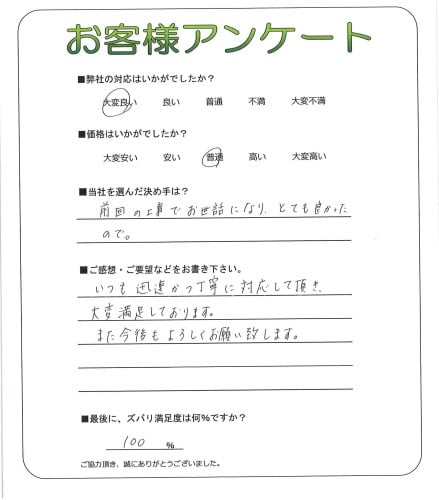 お客様アンケート
■弊社の対応はいかがでしたか？
大変良い 良い 普通 不満 大変不満
■価格はいかがでしたか？
大変安い 安い 普通 高い 大変高い
■当社を選んだ決め手は？
前回の工事でお世話になり、とても良かった
ので。
■ご感想・ご要望などをお書き下さい。
いつも迅速かつ丁寧に対応して頂き、
大変満足しております。
また今後もよろしくお願い致します。
■最後に、ズバリ満足度は何％ですか？
100 ％
ご協力頂き、誠にありがとうございました。